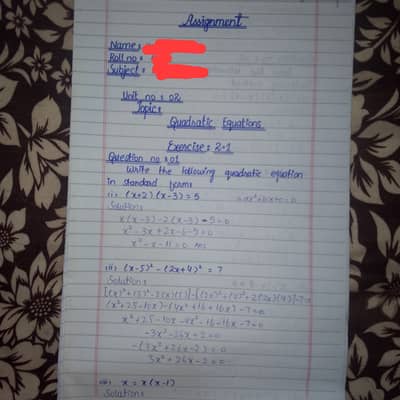 Assignment
Name :
Roll no :
Subject :
Unit no : 02
Topic :
Quadratic Equations
Exercise : 2.1
Question no : 01
Write the following quadratic equation
in standard form
i): (x+2)(x-3)=5
Solution :
x(x-3)-2(x-3)-5=0
x²-3x+2x-6-5=0
x²-x-11=0 Ans
ii): (x-5)²-(2x+4)²=7
Solution :
(x²+25-10x)-(4x²+16+16x)-7=0
x²+25-10x-4x²-16-16x-7=0
-3x²-26x+2=0
-(3x²+26x-2)=0
3x²+26x-2=0
iii) x=x(x-1)
Solution :